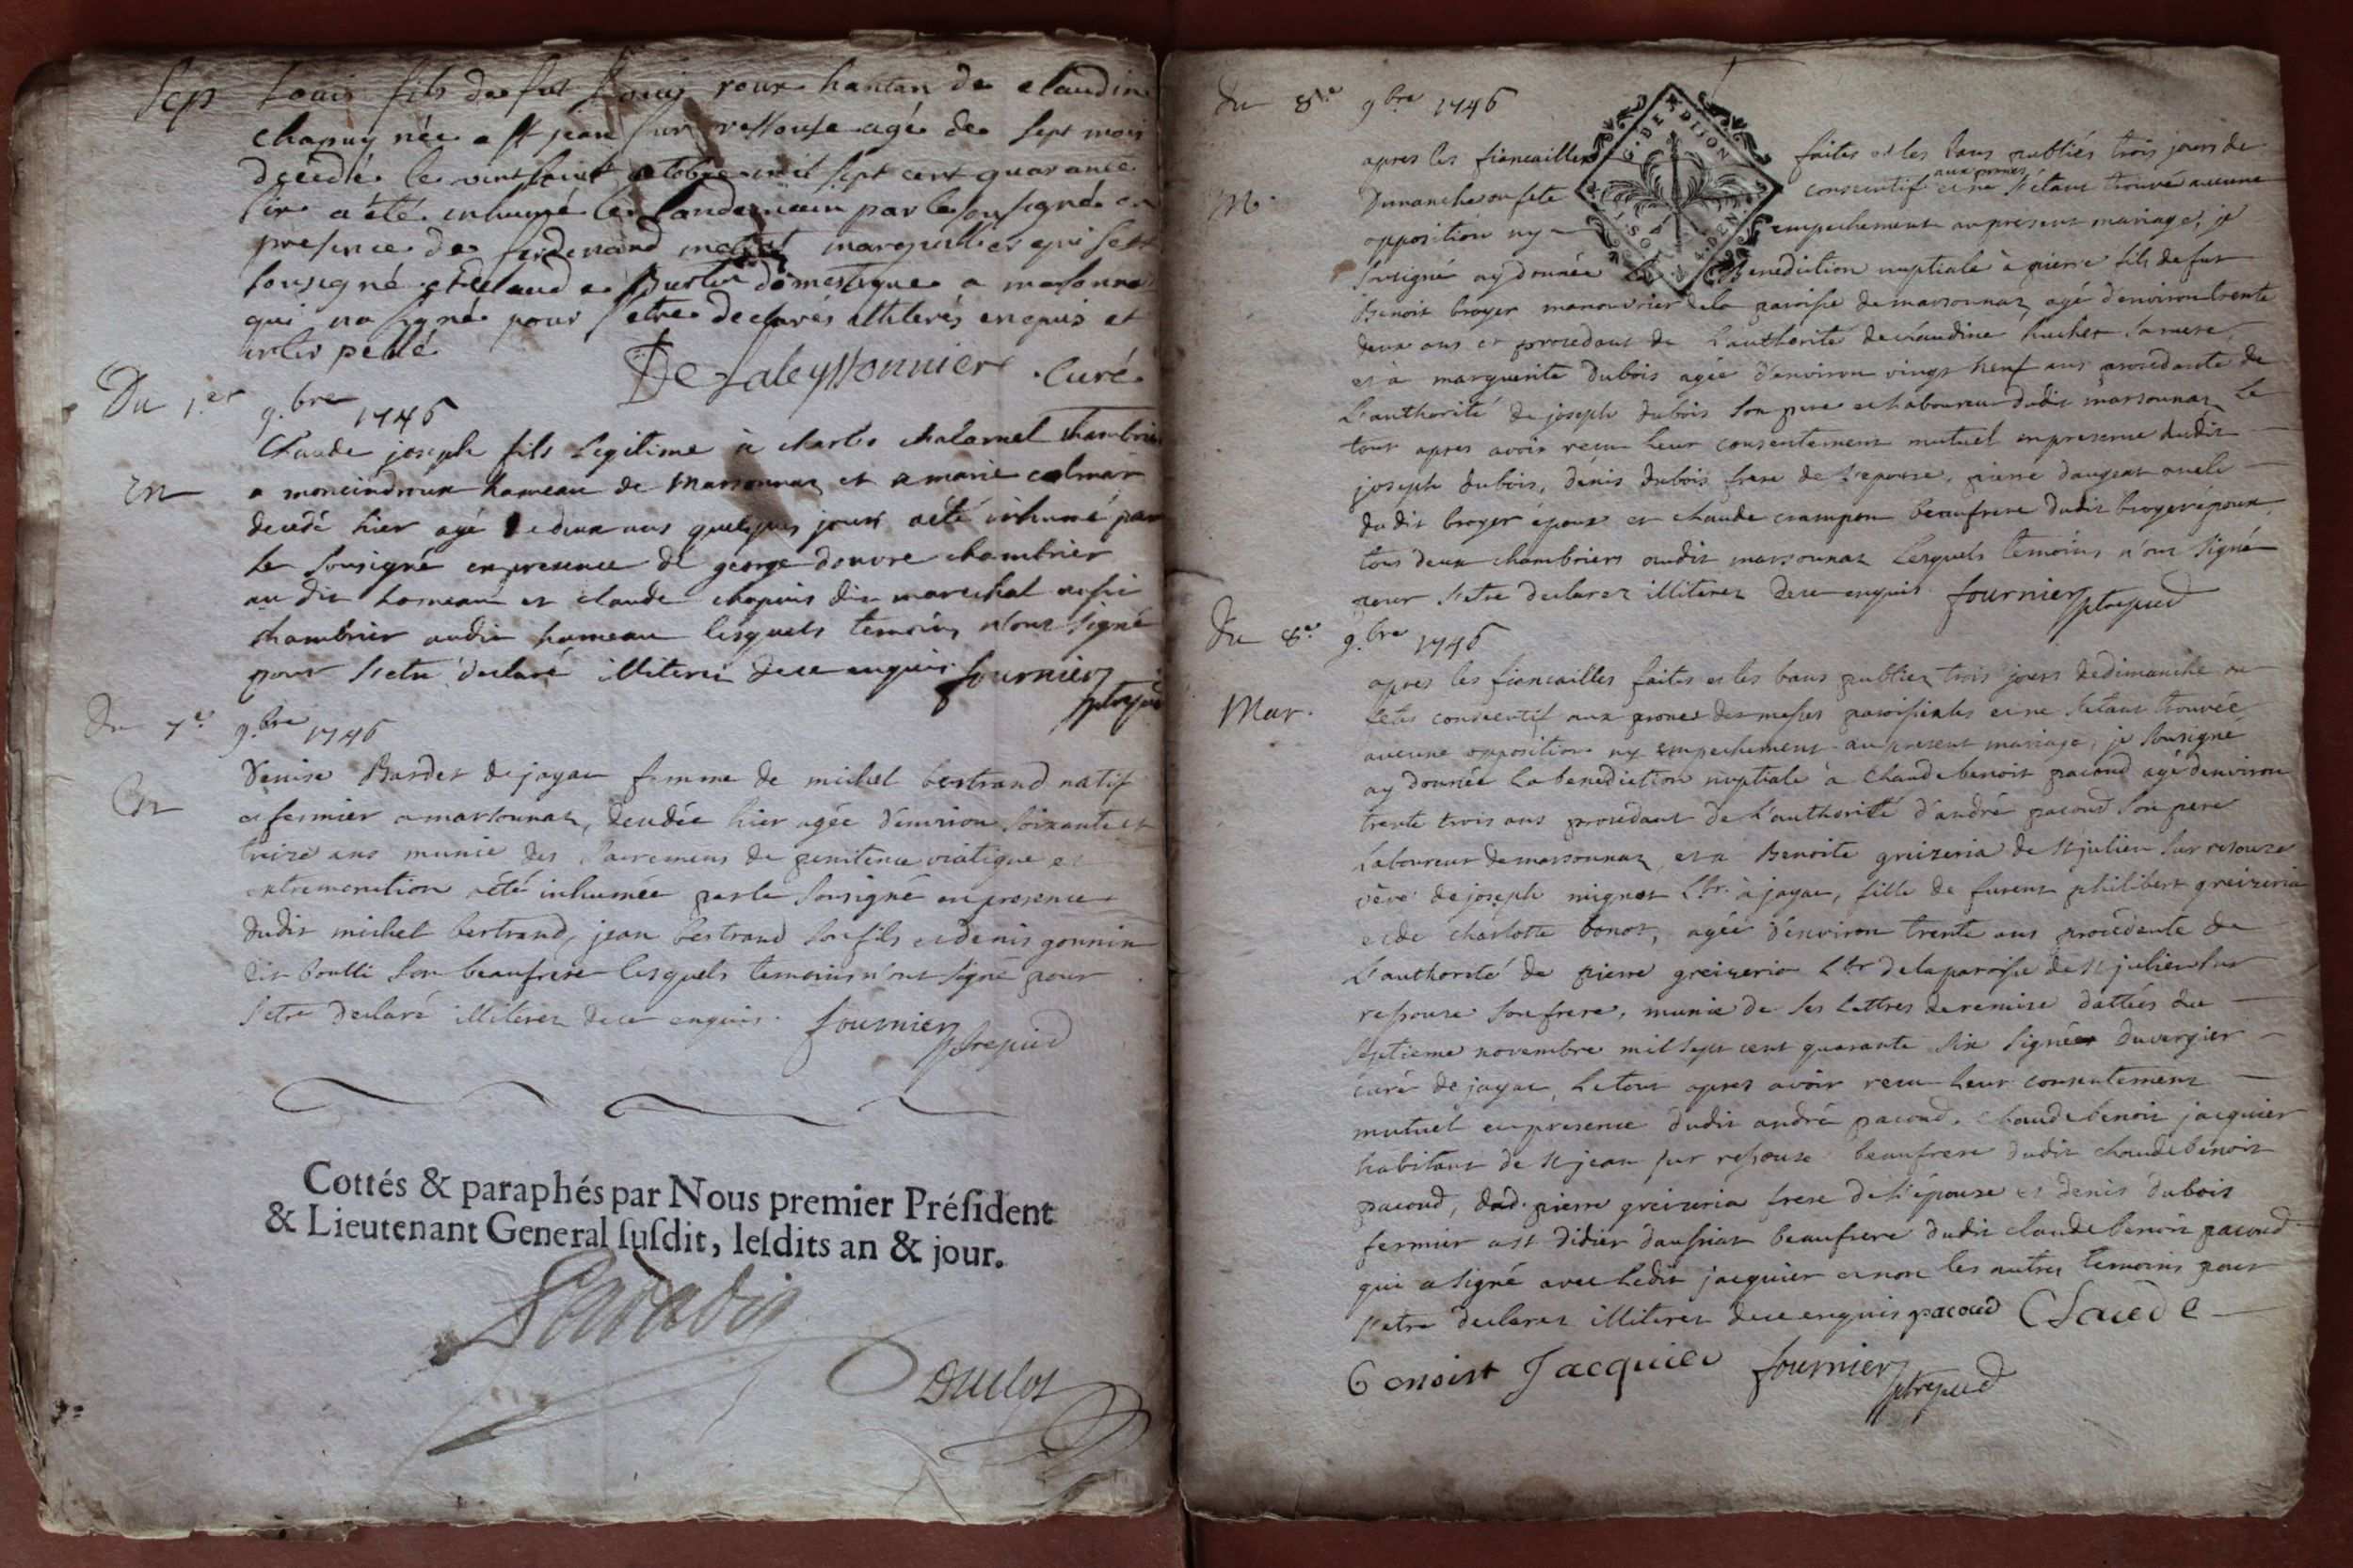 Sep Louis fils de fut Louis roux hantan de claudine
chapuy née a st jean sur ressouse agé de sept mois
décédé le vint huit octobre mil sept cent quarante
six a été inhumé le landemain par le sousigné en
presence de ferdenand marguillier qui sest
sousigné et claude domestique a marsonna
qui na signé pour setre declarés illiterés enquis et
inter pellé
De Laleyssonnier Curé
Du 1.er 9.bre 1746
Claude joseph fils legitime à charles chalamel chambrier
En a moncindroux hameau de Marsonnaz et a marie colmar
decédé hier agé de deux ans quelques jours a été inhumé par
le sousigné en presence de george douvre chambrier
au dit hameau et claude chapuis dit marechal aussi
chambrier audit hameau lesquels temoins n'ont signé
pour s'etre declaré illiteré de ce enquis fournier
ptre
Du 7.e 9.bre 1746
Denise Bardet de jayac femme de michel bertrand natif
En et fermier a marsonnaz, decedée hier agée d'environ soixante et
treize ans munie des sacremens de penitence viatique et
extremonction a été inhumée par le sousigné en presence
dudit michel bertrand, jean bertrand son fils et denis gonnin
dit son beaufrere lesquels temoins n'ont signé pour
s'etre declaré illiterez de ce enquis. fournier
Cottés & paraphés par Nous premier Préſident
& Lieutenant General ſuſdit, leſdits an & jour.
Duclos
Du 8.e 9.bre 1746
G. DE DIJON
4 DEN.
apres les fiancailles faites et les bans publiés trois jours de
M. Dimanche ou fete consecutif aux prones et ne s'étant trouvé aucune
opposition ny empechement au present mariage, je
sousigné ay donnée la Benediction nuptiale à pierre fils de fut
Benoit broyer manouvrier de la paroisse de marsonnaz agé d'environ trente
deux ans et procedant de l'authorité de claudine huchet sa mere,
et à marguerite Dubois agée d'environ vingt neuf ans procedante de
L'authorité de joseph dubois son pere et laboureur dudit marsonnaz Le
tout apres avoir recu leur consentement mutuel en presence dudit
joseph dubois, denis dubois frere de l'epouse, pierre oncle
du dit broyer époux et claude crampon beaufrere dudit broyer époux,
tous deux chambriers oudit marsonnaz lesquels temoins n'ont signé
pour s'etre declarez illiterez de ce enquis fournier
Du 8.e 9.bre 1746
apres les fiancailles faites et les bans publiez trois jours de dimanche ou
Mar. fetes consecutif aux prones des messes paroissiales et ne s'etant trouvée
aucune opposition ny empechement au present mariage, je sousigné
ay donnée la benediction nuptiale à Claude benoit pacoud agé d'environ
trente trois ans procedant de l'authorité d'andré pacoud son pere
Laboureur de marsonnaz et a Benoite greizeria de st julien sur resouze
veve de joseph mignot Lbr. à jayac, fille de furent philibert greizeria
et de charlotte bonot, agée d'environ trente ans procedente de
L'authorité de pierre greizeria Lbr de la paroisse de st julien sur
ressouze son frere, munie de ses lettres de remise dattées du
septieme novembre mil sept cent quarante six signées Duvergier
curé de jayac, Le tout apres avoir recu leur consentement
mutuel en presence dudit andré pacoud, Claude benoit jacquier
habitant de st jean sur ressouze beaufrere dudit claude benoit
pacoud, dud. pierre greizeria frere de l'épouse et denis dubois
fermier a st didier beaufrere dudit claude benoit pacoud
qui a signé avec ledit jacquier et non les autres temoins pour
s'etre declarez illiterez de ce enquis pacoud Claude
benoist Jacquier fournier